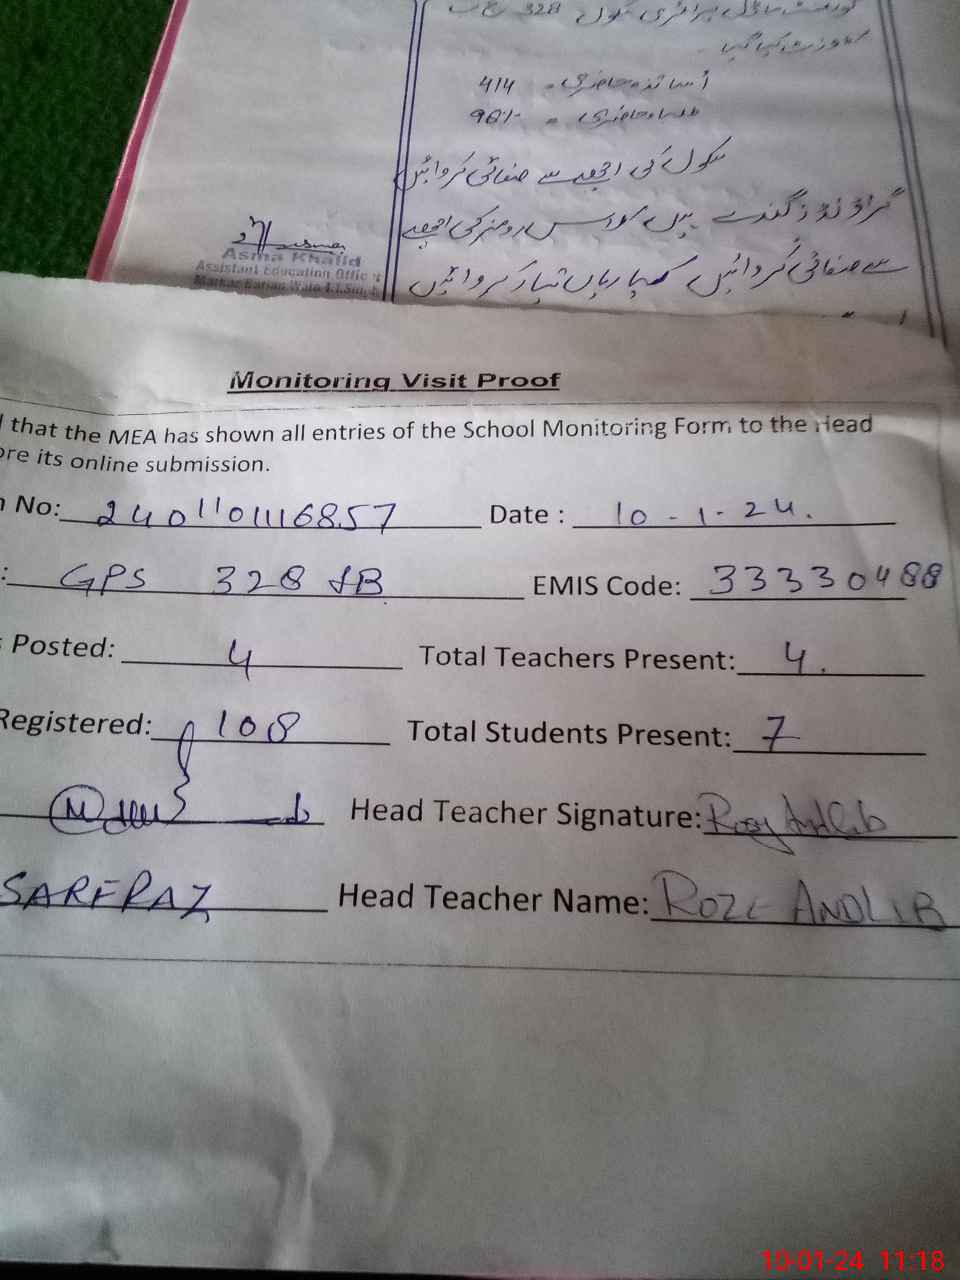 گورنمنٹ ماڈل پرائمری سکول 328 ج ب
وزٹ کیا گیا
اساتذہ حاضری = 4/4
طلباء حاضری = 90%
سکول کی اچھے سے صفائی کروائیں
گراؤنڈز گندے ہیں کلاس رومز کی اچھے
سے صفائی کروائیں کیاریاں تیار کروائیں
Asma Khalid
Assistant Education Office
Markaz
Monitoring Visit Proof
that the MEA has shown all entries of the School Monitoring Form to the Head
ore its online submission.
No: 2401101116857 Date : 10-1-24.
: GPS 328 JB EMIS Code: 33330488
Posted: 4 Total Teachers Present: 4.
Registered: 108 Total Students Present: 7
Head Teacher Signature: Rozy Andlib
SARFRAZ Head Teacher Name: ROZE ANDLIB
10-01-24 11:18